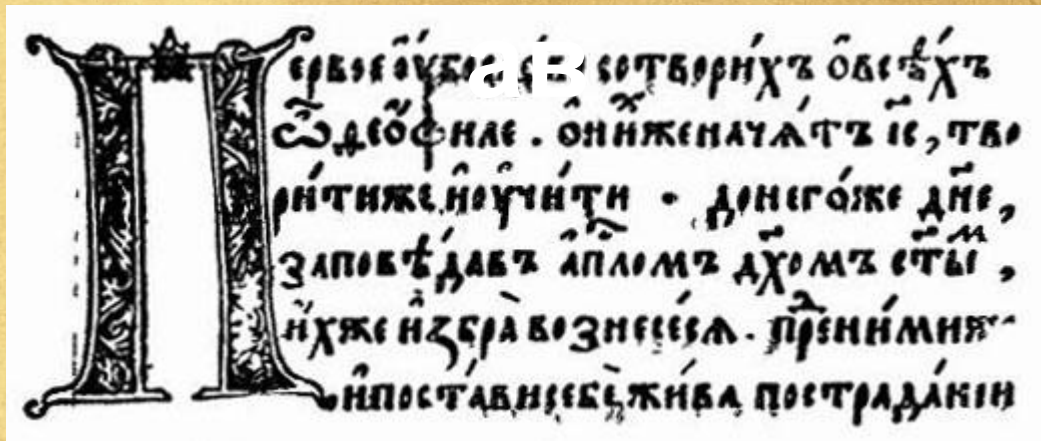 Первоеѻ҆у҆бо ав сотвори́хъ ѻ҆всѣ́хъ
ѽ ѳео́филе . ѻ҆ни́хженача́тъ і҃с, тво
ри́тиже и҆оу҆чи́ти . донего́же дн҃е,
заповѣ́давъ а҆п҃ломъ дх҃омъ ст҃ыⷨ,
и҆́хже и҆збра̀ вознесе́сѧ . преⷣни́миж
и҆поста́висебѐ жи́ва пострада́нїи